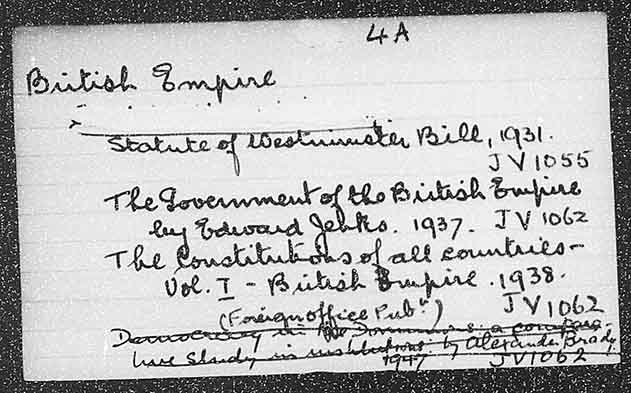 4A
British Empire
Statute of Westminster Bill, 1931.
JV1055
The Government of the British Empire
by Edward Jenks. 1937. JV1062
The Constitutions of all countries-
Vol. I - British Empire. 1938.
(Foreign office Pubn.) JV1062
Democracy in the Dominions: a compara-
tive Study in institutions by Alexander Brady
1947 JV1062